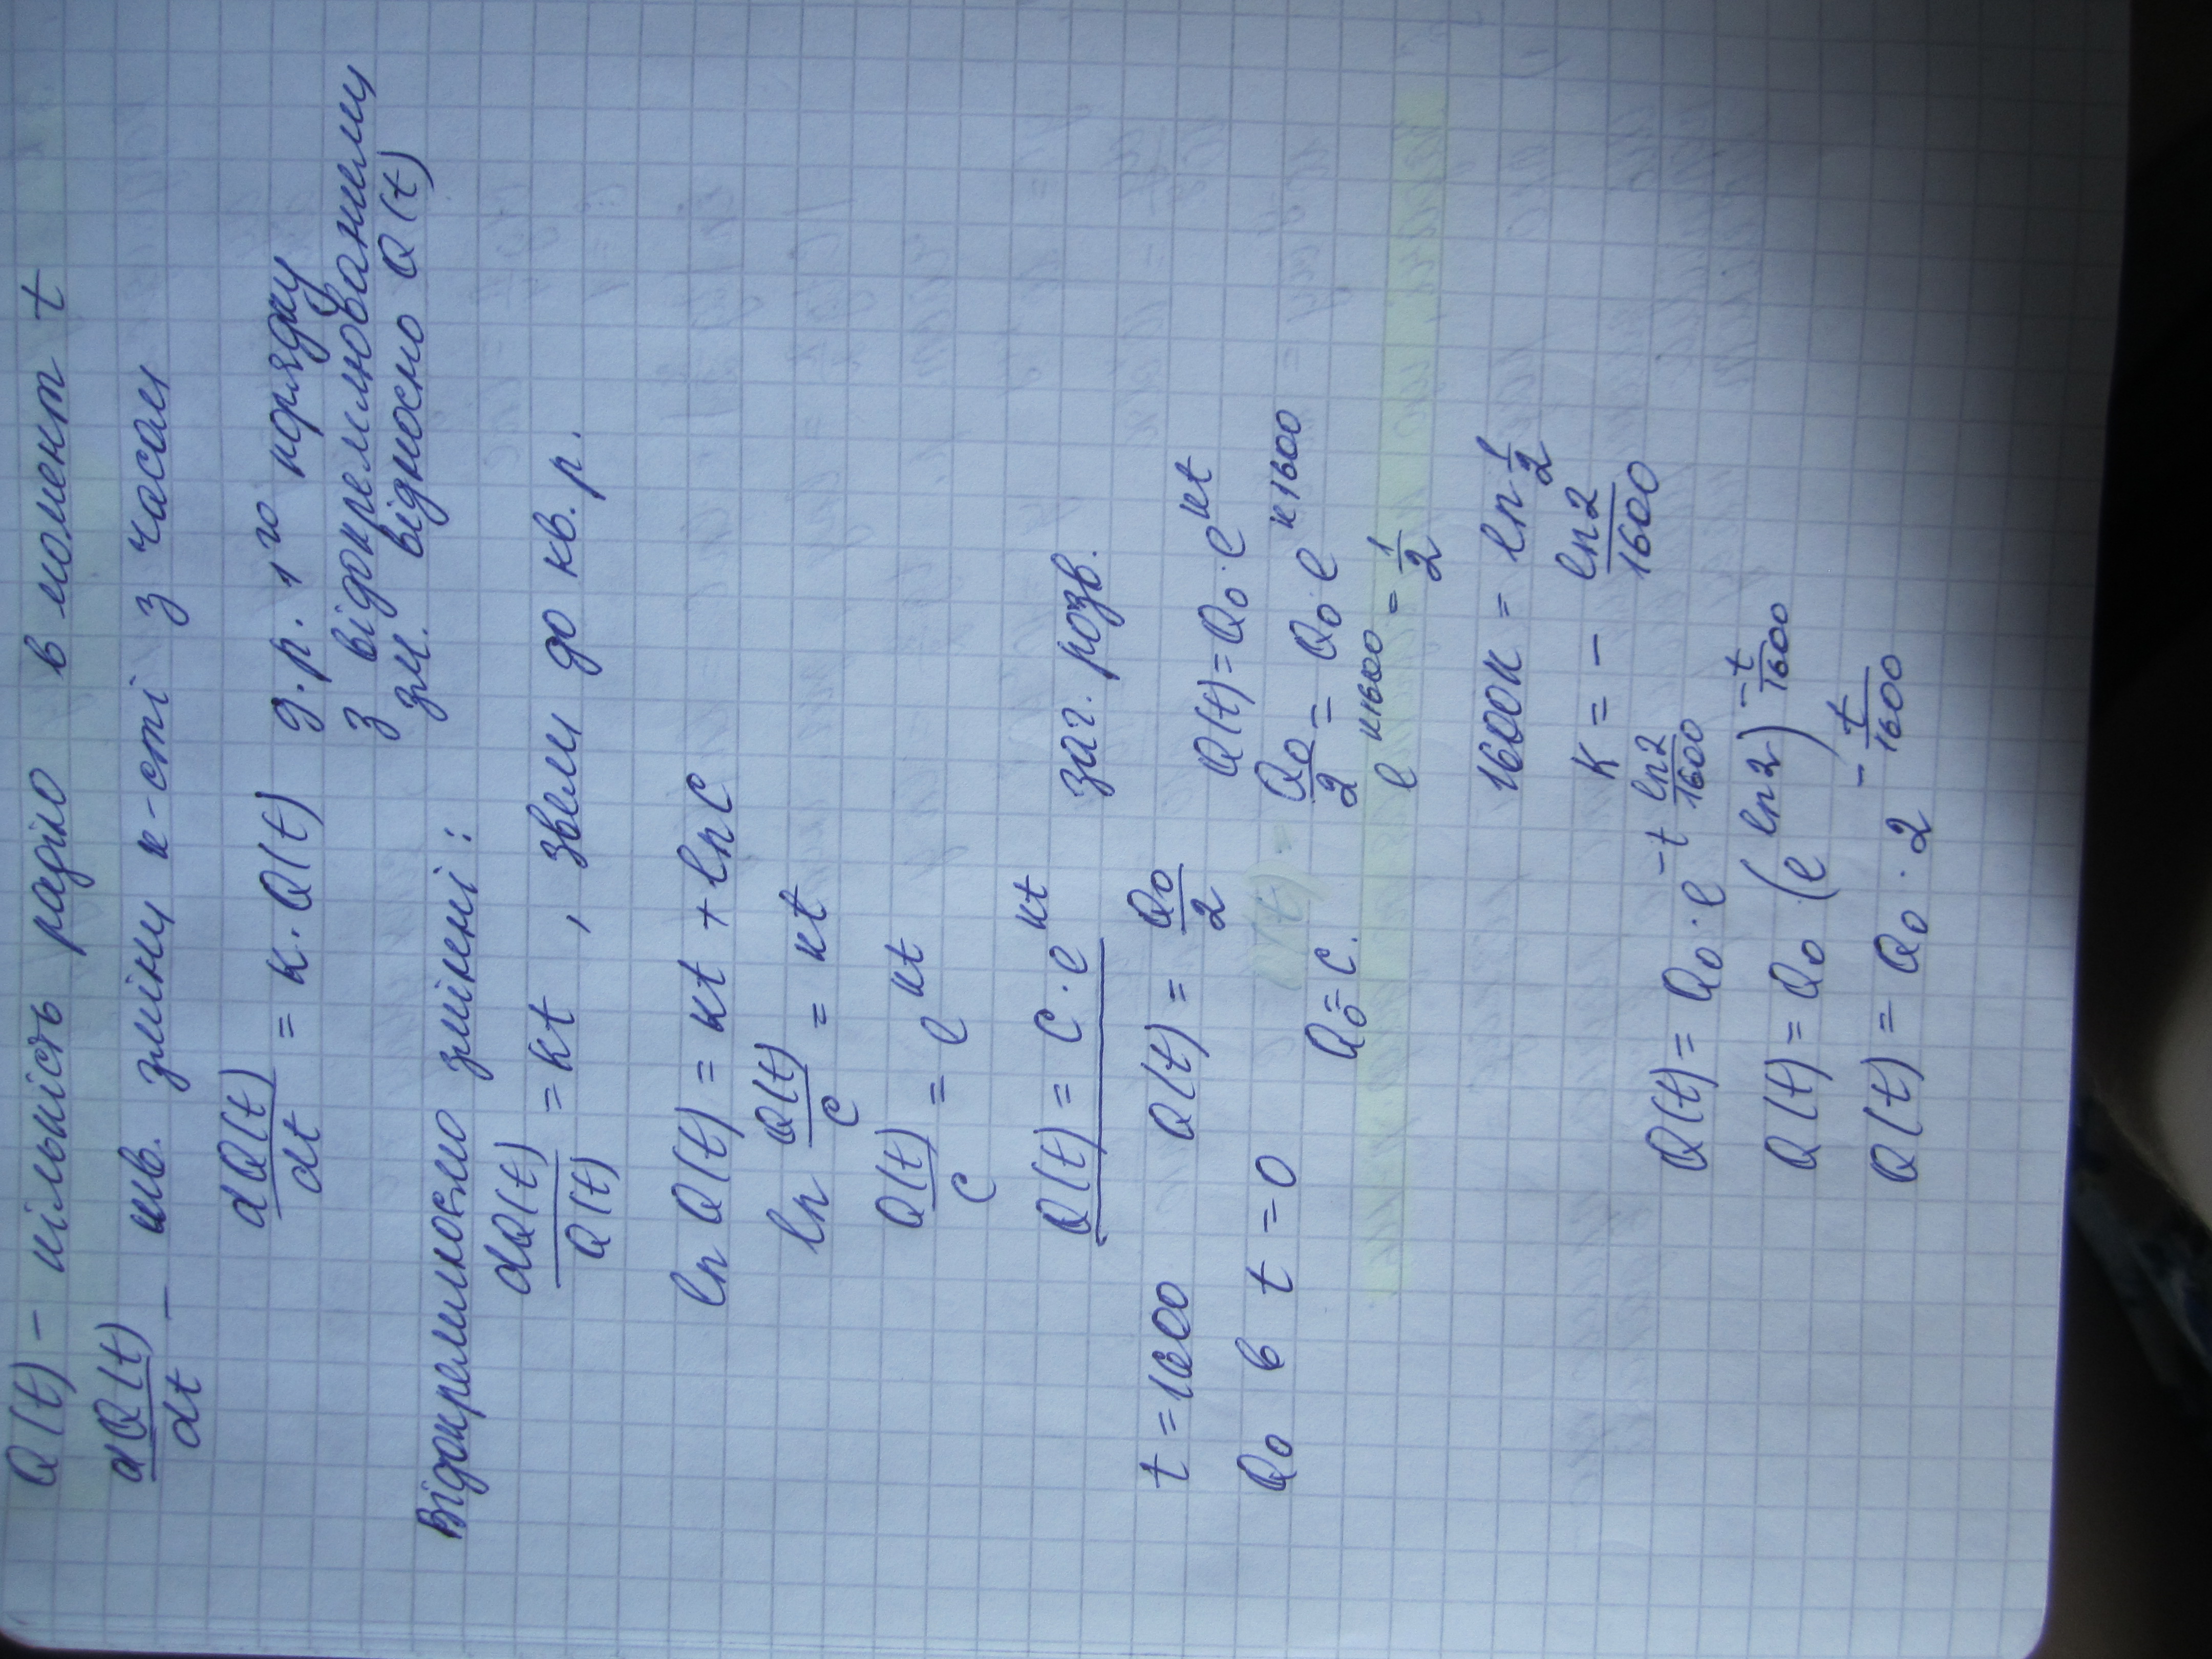 Q(t) – кількість радію в момент t
dQ(t)/dt – шв. зміни к-сті з часом
dQ(t)/dt = к · Q(t) д.р. 1го порядку
з відокремлюваними
зм. відносно Q(t)
Відокремлюємо змінні :
dQ(t)/Q(t) = кt , звели до кв. р.
ln Q(t) = кt + ln C
ln Q(t)/C = кt
Q(t)/C = e^кt
Q(t) = C · e^кt заг. розв.
t = 1600 Q(t) = Q₀/2
Q₀ в t = 0
Q₀ = C.
Q(t) = Q₀ · e^кt
Q₀/2 = Q₀ · e^к1600
e^к1600 = 1/2
1600к = ln 1/2
к = – ln2/1600
Q(t) = Q₀ · e^(–t ln2/1600)
Q(t) = Q₀ (e^ln2)^(–t/1600)
Q(t) = Q₀ · 2^(–t/1600)